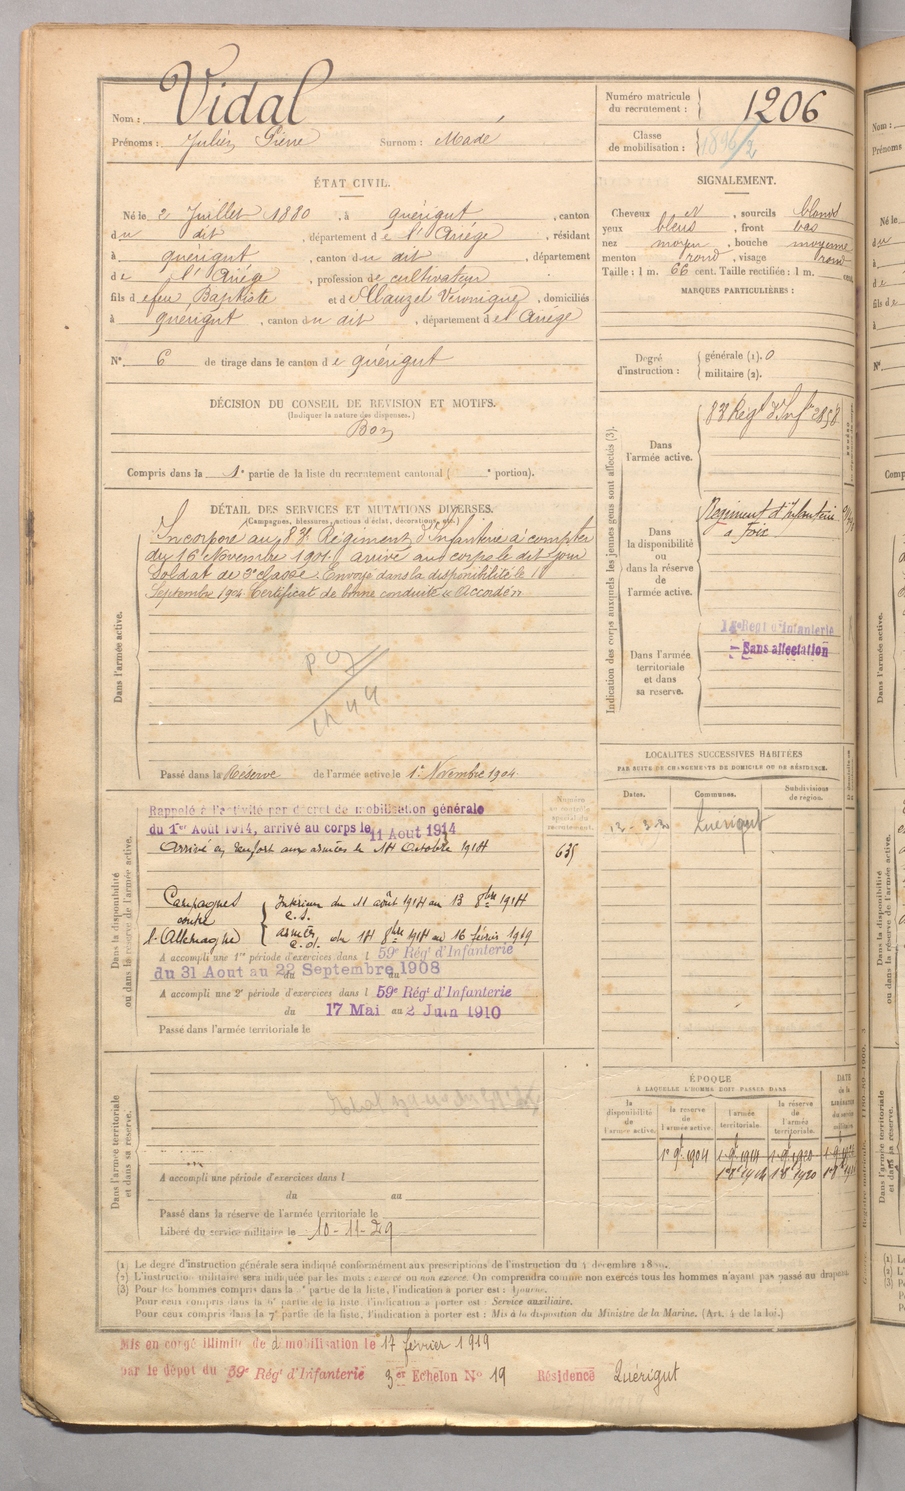 Nom : Vidal
Prénoms : Julien Pierre Surnom : Madé
Numéro matricule du recrutement : 1206
Classe de mobilisation : 1896/2
ÉTAT CIVIL.
Né le 2 Juillet 1880, à quérigut, canton
du dit, département de l'Ariége, résidant
à quérigut, canton du dit, département
de l'Ariége, profession de cultivateur
fils de feu Baptiste et de Mauzel Véronique, domiciliés
à quérigut, canton du dit, département de l'Ariege
N° 6 de tirage dans le canton de quérigut
SIGNALEMENT.
Cheveux et, sourcils blonds
yeux bleus, front bas
nez moyen, bouche moyenne
menton rond, visage rond
Taille : 1 m. 66 cent. Taille rectifiée : 1 m. cent.
MARQUES PARTICULIÈRES :
Degré d'instruction : générale (1). 0
militaire (2).
DÉCISION DU CONSEIL DE REVISION ET MOTIFS.
(Indiquer la nature des dispenses.)
Bon
Compris dans la 1e partie de la liste du recrutement cantonal ( e portion).
DÉTAIL DES SERVICES ET MUTATIONS DIVERSES.
(Campagnes, blessures, actions d'éclat, décorations, etc.)
Dans l'armée active.
Incorporé au 83e Régiment d'Infanterie à compter
du 16 Novembre 1901 arrivé au corps le dit jour
Soldat de 2e classe. Envoyé dans la disponibilité le
Septembre 1904 Certificat de bonne conduite "Accordé"
Passé dans la Réserve de l'armée active le 1er Novembre 1904.
Indication des corps auxquels les jeunes gens sont affectés (3).
Dans l'armée active.
83e Régt d'Infie
Dans la disponibilité ou dans la réserve de l'armée active.
Régiment d'Infanterie
à Foix
Dans l'armée territoriale et dans sa reserve.
Régt d'Infanterie
Sans affectation
LOCALITES SUCCESSIVES HABITÉES
PAR SUITE DE CHANGEMENTS DE DOMICILE OU DE RÉSIDENCE.
Dates. Communes. Subdivisions de région.
Quérigut
Dans la disponibilité ou dans la réserve de l'armée active.
Rappelé à l'activité par décret de mobilisation générale
du 1er Août 1914, arrivé au corps le 11 Aout 1914
Arrivé en renfort aux armées le 14 Octobre 1914
635
Campagnes contre l'Allemagne
Intérieur du 11 août 1914 au 13 8bre 1914
armées du 14 8bre 1914 au 16 février 1919
A accompli une 1re période d'exercices dans l 59e Régt d'Infanterie
du 31 Aout au 22 Septembre 1908
A accompli une 2e période d'exercices dans l 59e Régt d'Infanterie
du 17 Mai au 2 Juin 1910
Passé dans l'armée territoriale le
Dans l'armée territoriale et dans sa réserve.
A accompli une période d'exercices dans l
du au
Passé dans la réserve de l'armée territoriale le
Libéré du service militaire le 10-11-29
ÉPOQUE
À LAQUELLE L'HOMME DOIT PASSER DANS
la disponibilité de l'armée active. la réserve de l'armée active. l'armée territoriale. la réserve de l'armée territoriale. DATE de la LIBÉRATION du service militaire
(1) Le degré d'instruction générale sera indiqué conformément aux prescriptions de l'instruction du 4 décembre
(2) L'instruction militaire sera indiquée par les mots : exercé ou non exercé. On comprendra comme non exercés tous les hommes n'ayant pas passé au drapeau.
(3) Pour les hommes compris dans la partie de la liste, l'indication à porter est :
Pour ceux compris dans la 6e partie de la liste, l'indication à porter est : Service auxiliaire.
Pour ceux compris dans la 7e partie de la liste, l'indication à porter est : Mis à la disposition du Ministre de la Marine. (Art. 4 de la loi.)
Mis en congé illimité de démobilisation le 17 février 1919
par le dépôt du 59e Régt d'Infanterie 3er Echelon No 19 Résidence Quérigut